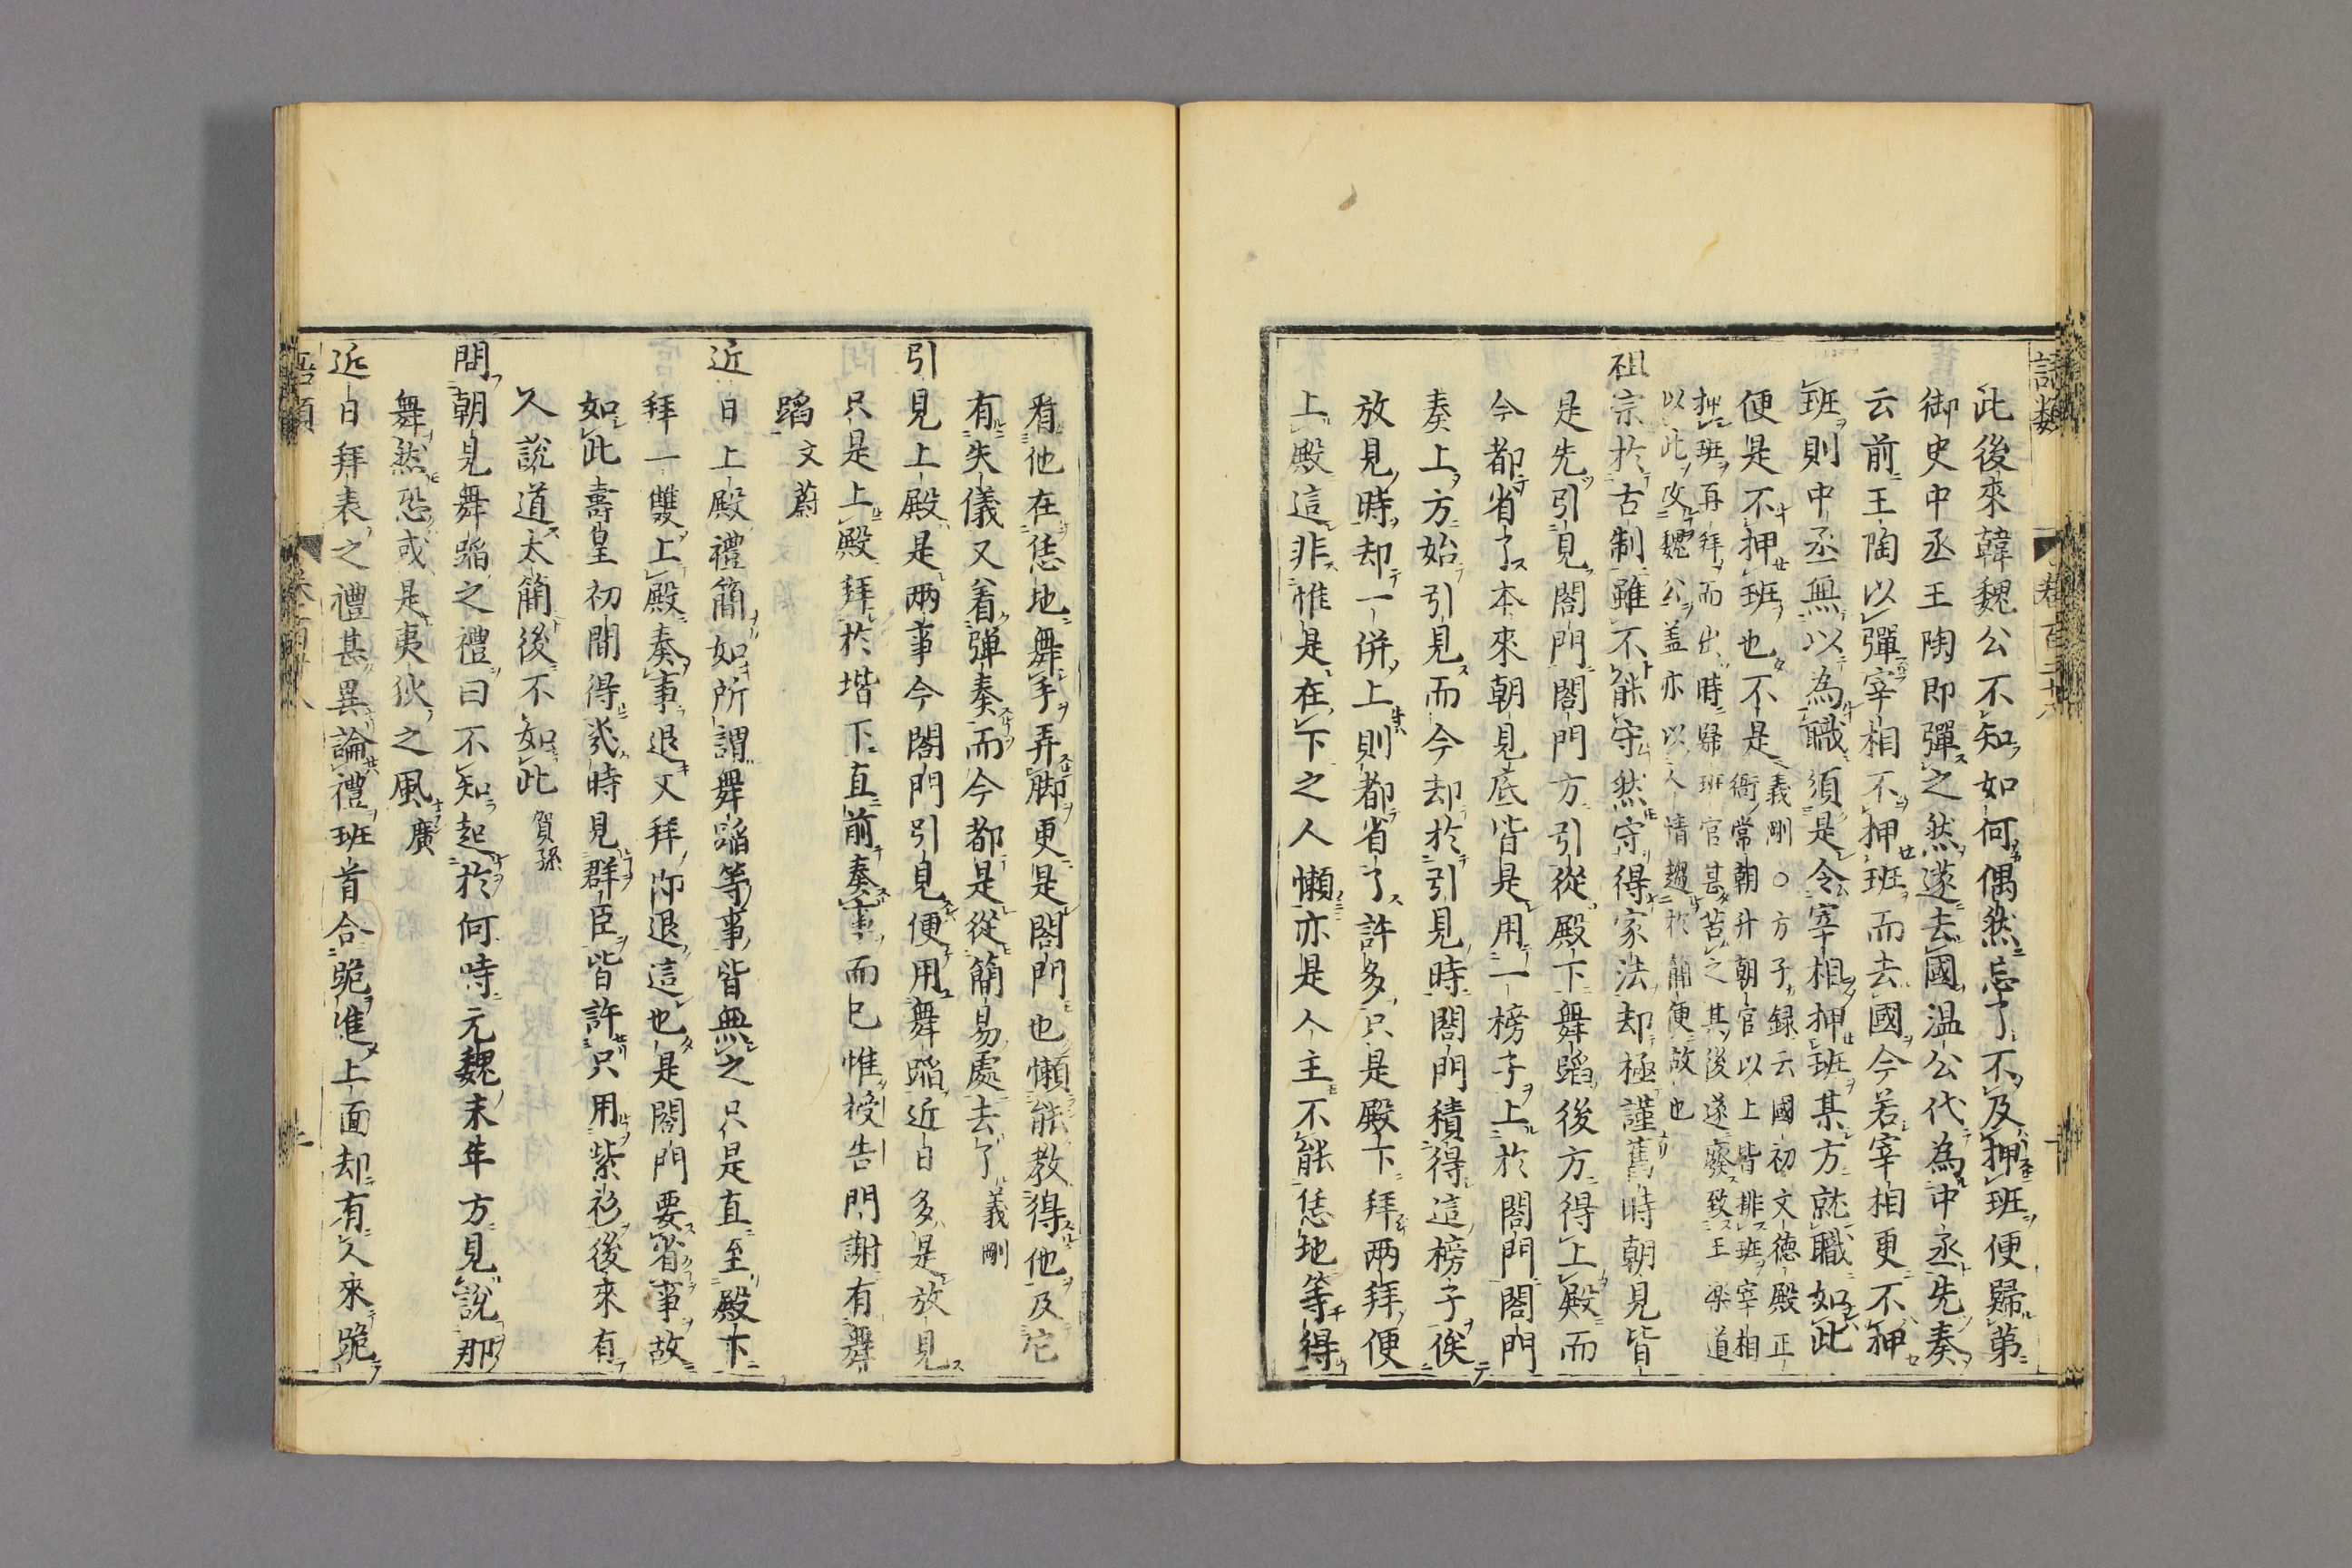 語類
卷百二十八
此後來韓魏公不知如何偶然忘了不及押班便歸第
御史中丞王陶即彈之然遂去國温公代為中丞先奏
云前王陶以彈宰相不押班而去國今若宰相更不押
班則中丞無以為職須是令宰相押班某方就職如此
便是不押班也不是
義剛〇方子録云國初文德殿正
衙常朝升朝官以上皆排班宰相
押班再拜而出時歸班官甚苦之其後遂廢致王樂道
以此攻魏公盖亦以人情趨於簡便故也
祖宗於古制雖不能守然守得家法却極謹舊時朝見皆
是先引見閤門閤門方引從殿下舞蹈後方得上殿而
今都省了本來朝見底皆是用一榜子上於閤門閤門
奏上方始引見而今却於引見時閤門積得這榜子俟
放見時却一併上則都省了許多只是殿下拜两拜便
上殿這非惟是在下之人懶亦是人主不能恁地等得
看他在恁地舞手弄脚更是閤門也懶能教得他及它
有失儀又着彈奏而今都是從簡易處去了 義剛
引見上殿是两事今閤門引見便用舞蹈近日多是放見
只是上殿拜於堦下直前奏事而已惟授告門謝有舞
蹈 文蔚
近日上殿禮簡如所謂舞蹈等事皆無之只是直至殿下
拜一雙上殿奏事退又拜即退這也是閤門要省事故
如此壽皇初間得幾時見群臣皆許只用紫衫後來有
人說道太簡後不如此 賀孫
問朝見舞蹈之禮曰不知起於何時元魏末年方見說那
舞然恐或是夷狄之風 廣
近日拜表之禮甚異論禮班首合跪進上面却有人來跪
語類